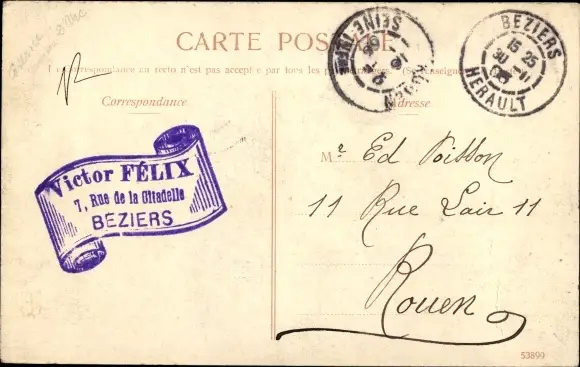 CARTE POSTALE
La correspondance au recto n'est pas acceptée par tous les pays étrangers. (Se renseigner
Correspondance
Adresse
SEINE INFRE
ROUEN
BEZIERS
15 25
30 11
HERAULT
Victor FÉLIX
7, Rue de la Citadelle
BEZIERS
Mr Ed Poisson
11 Rue Lair 11
Rouen
53899